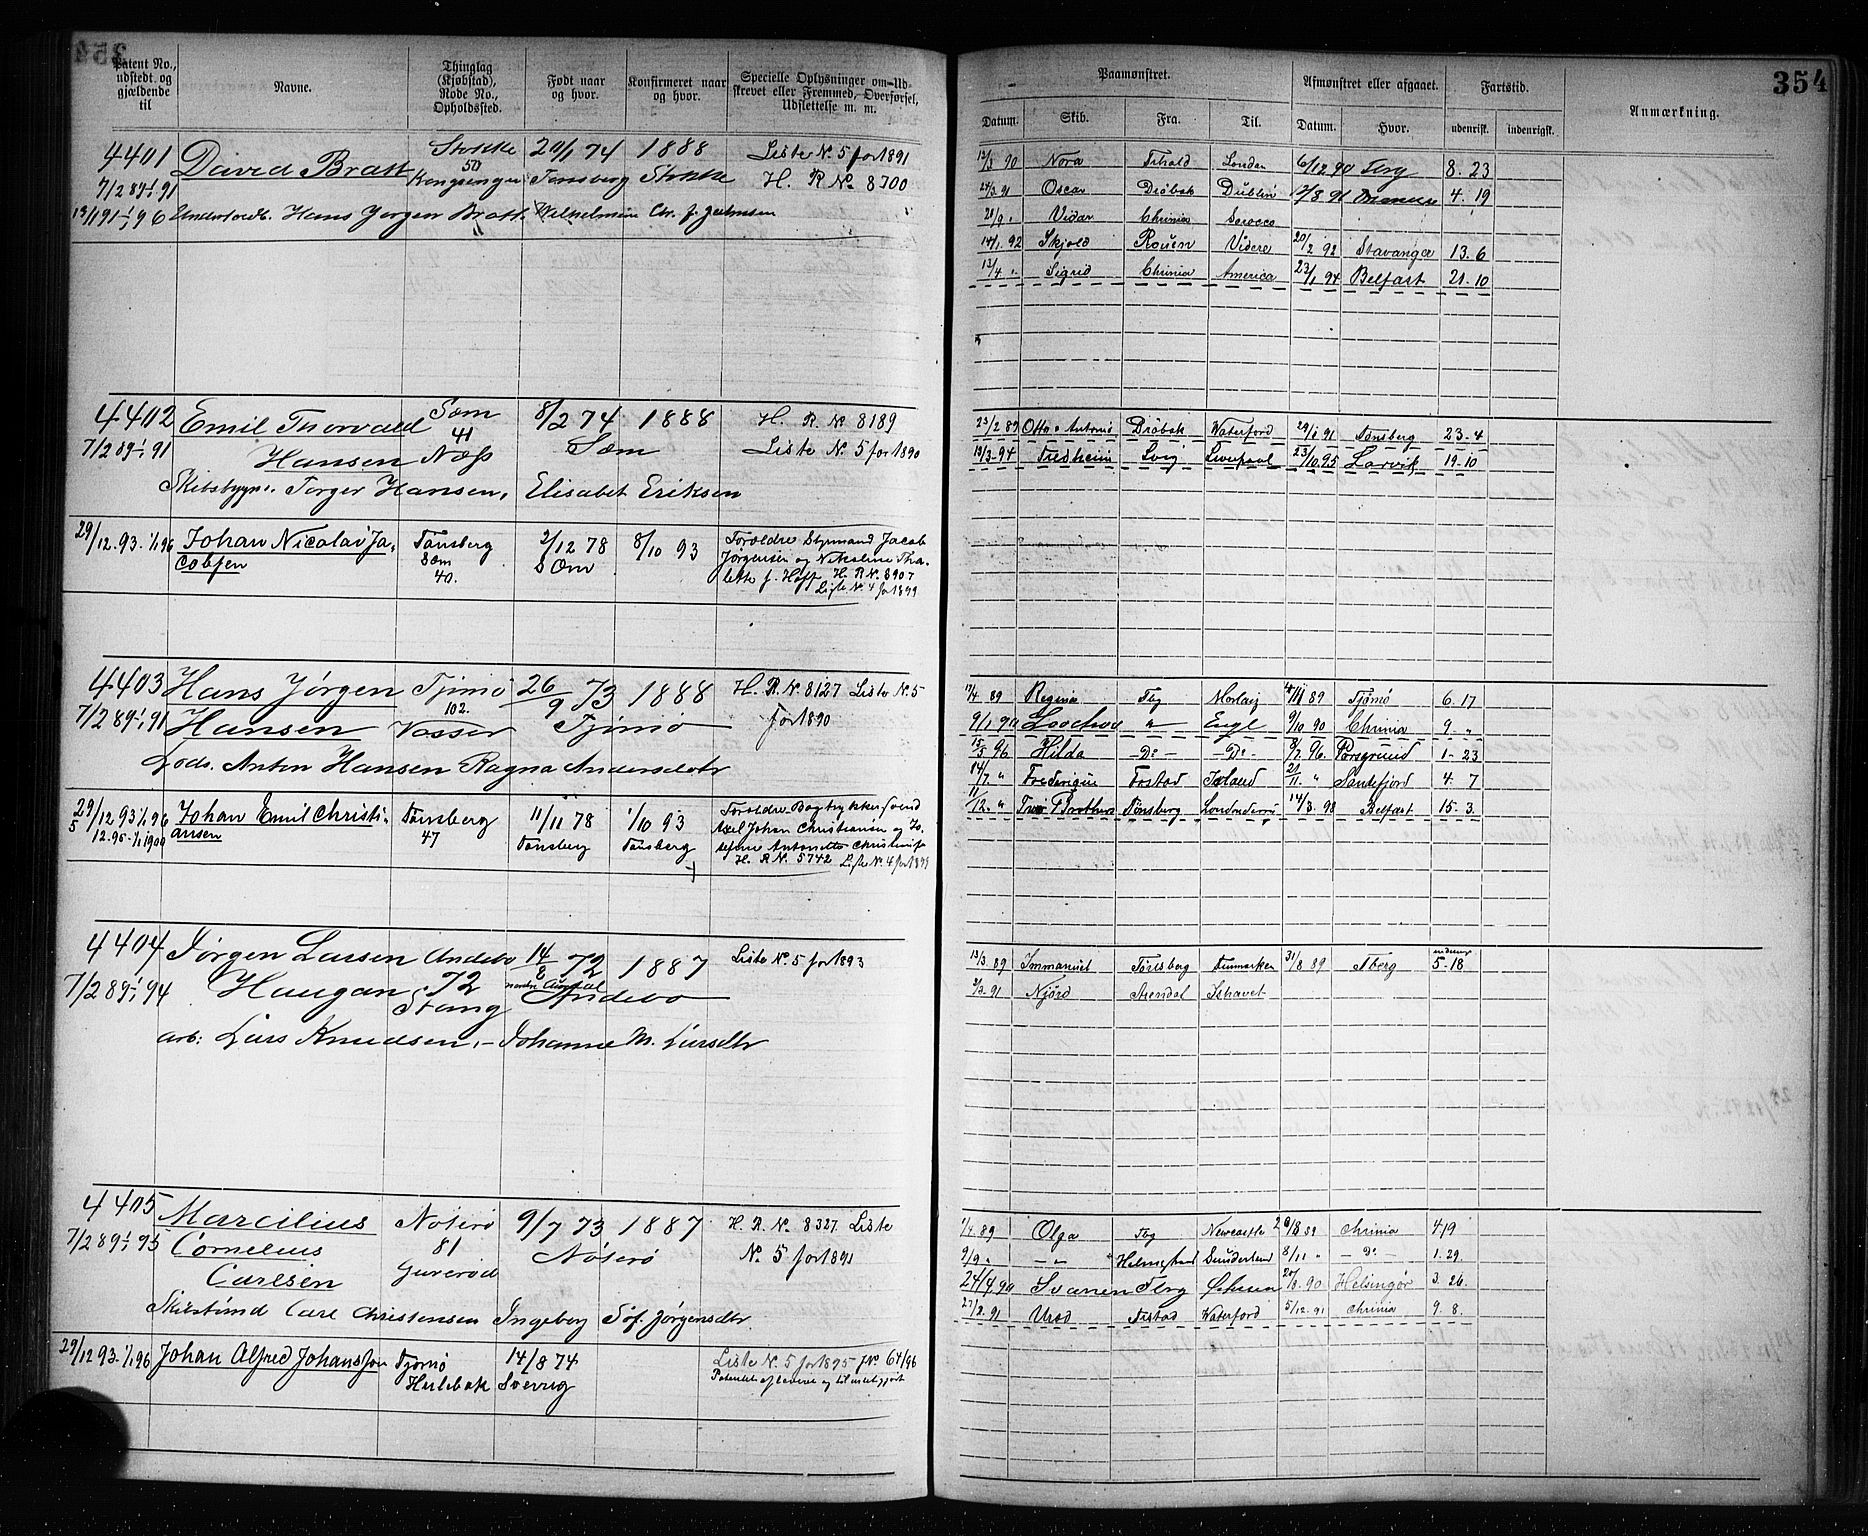 354
Patent No., udstedt og gjældende til
Navne.
Thinglag (Kjøbstad), Rode No., Opholdssted.
Født naar og hvor.
Konfirmeret naar og hvor.
Specielle Oplysninger om Udskrevet eller Fremmed, Overførsel, Udslettelse m. m.
Paamønstret.
Afmønstret eller afgaaet.
Fartstid.
Anmærkning.
Datum. Skib. Fra. Til. Datum. Hvor. udenrisk. indenrigsk.
4401 David Bratt Stokke 20/1 74 1888 Liste No. 5 for 1891
7/2 89-1/1 91 Tønsberg Stokke H. R No. 8700
Hans Jørgen Bratt Wilhelmine Chr. f.
12/3 90 Nora London 6/12 90 Tbrg 8. 23
24/3 91 Oscar Drøbak Dublin 17/8 91 4. 19
20/9 " Vidar Chrinia
14/1. 92 Skjold Rouen Videre 20/2 92 Stavanger 13. 6
13/4 " Sigrid Chrinia America 23/1 94 Belfast 21. 10
4402 Emil Thorvald Sem 8/2 74 1888 H. R No 8189
41
7/2 89-1/1 91 Hansen Næss Sem Liste No. 5 for 1890
Skibsbygm. Torger Hansen, Elisabet Eriksen
23/2 89 Otto & Antonio Drøbak Waterford 29/1 91 Tønsberg 23-4
19/3-94 Liverpool 23/10 95 Larvik 19-10
29/12. 93. 1/1 96 Johan Nicolai Ja- Tønsberg 2/12 78 8/10 93 Forældre Styrmand Jacob
cobsen Sem Sem Jørgensen og Nikoline Tha-
40. f. Hoff H. R No. 8907
Liste No. 4 for 1899
4403 Hans Jørgen Tjømø 26/9 73 1888 H. R. No 8127 Liste No. 5
102.
7/2 89-1/1 91 Hansen Vasser Tjømø for 1890
Lods. Anton Hansen Ragna Andersdatr
17/4. 89 Regina Tbg Morlaix 89 Tjømø 6. 17
9/1 90 " Engl 9/10 90 Chrinia 9. "
15/5 96 Hilda -Do- -Do- 8/7. 96. Porsgrund 1- 23
14/7 " Frederique Frstad Island 21/11. " Sandefjord 4. 7
11/12. " Two Brothers Tønsberg 14/3. 98 Belfast 15. 3.
29/12 93 1/1 96 Johan Emil Christi- Tønsberg 11/11 78 1/10 93 Forældre
5/12. 95-1/1 1900 ansen 47 Tønsberg Tønsberg Axel Johan Christiansen og Jo-
sefine Antonette
H. R No. 5742 Liste No. 4 for 1899
4404 Jørgen Larsen Andebo 14/8 72 1887 Liste No. 5 for 1893
7/2 89-1/1 94 Haugan 72 Andebo
Stang
arb: Lars Knudsen, - Johanne M. Larsdtr
13/3. 89 Immanuel Tønsberg Danmarken 31/8 89 Tberg 5-18
91 Njörd Arendal Ishavet
4405 Marcilius Nøterø 9/7 73 1887 H. R. No. 8327. Liste
7/2 89-1/1 95 Cornelius 81 Nøterø No. 5 for 1891
Carlsen
Carl Christensen Ingeborg Sof. Jørgensdtr.
1/4. 89 Olga Tbg Newcastle 89 Chrinia 4 19
9/9 " -"- Sunderland 8/11 " - Do - 1. 29.
24/4. 90 Svanen Tbrg 90 Helsingør 3. 26.
27/2. 91 Urød Frstad Waterford 5/12. 91 Chrinia 9. 8.
29/12 93. 1/1 96 Johan Alfred Johanssen Tjømø 14/8 74 Liste No. 5 for 1895 JNo 64/96
Hulebak Sverrig